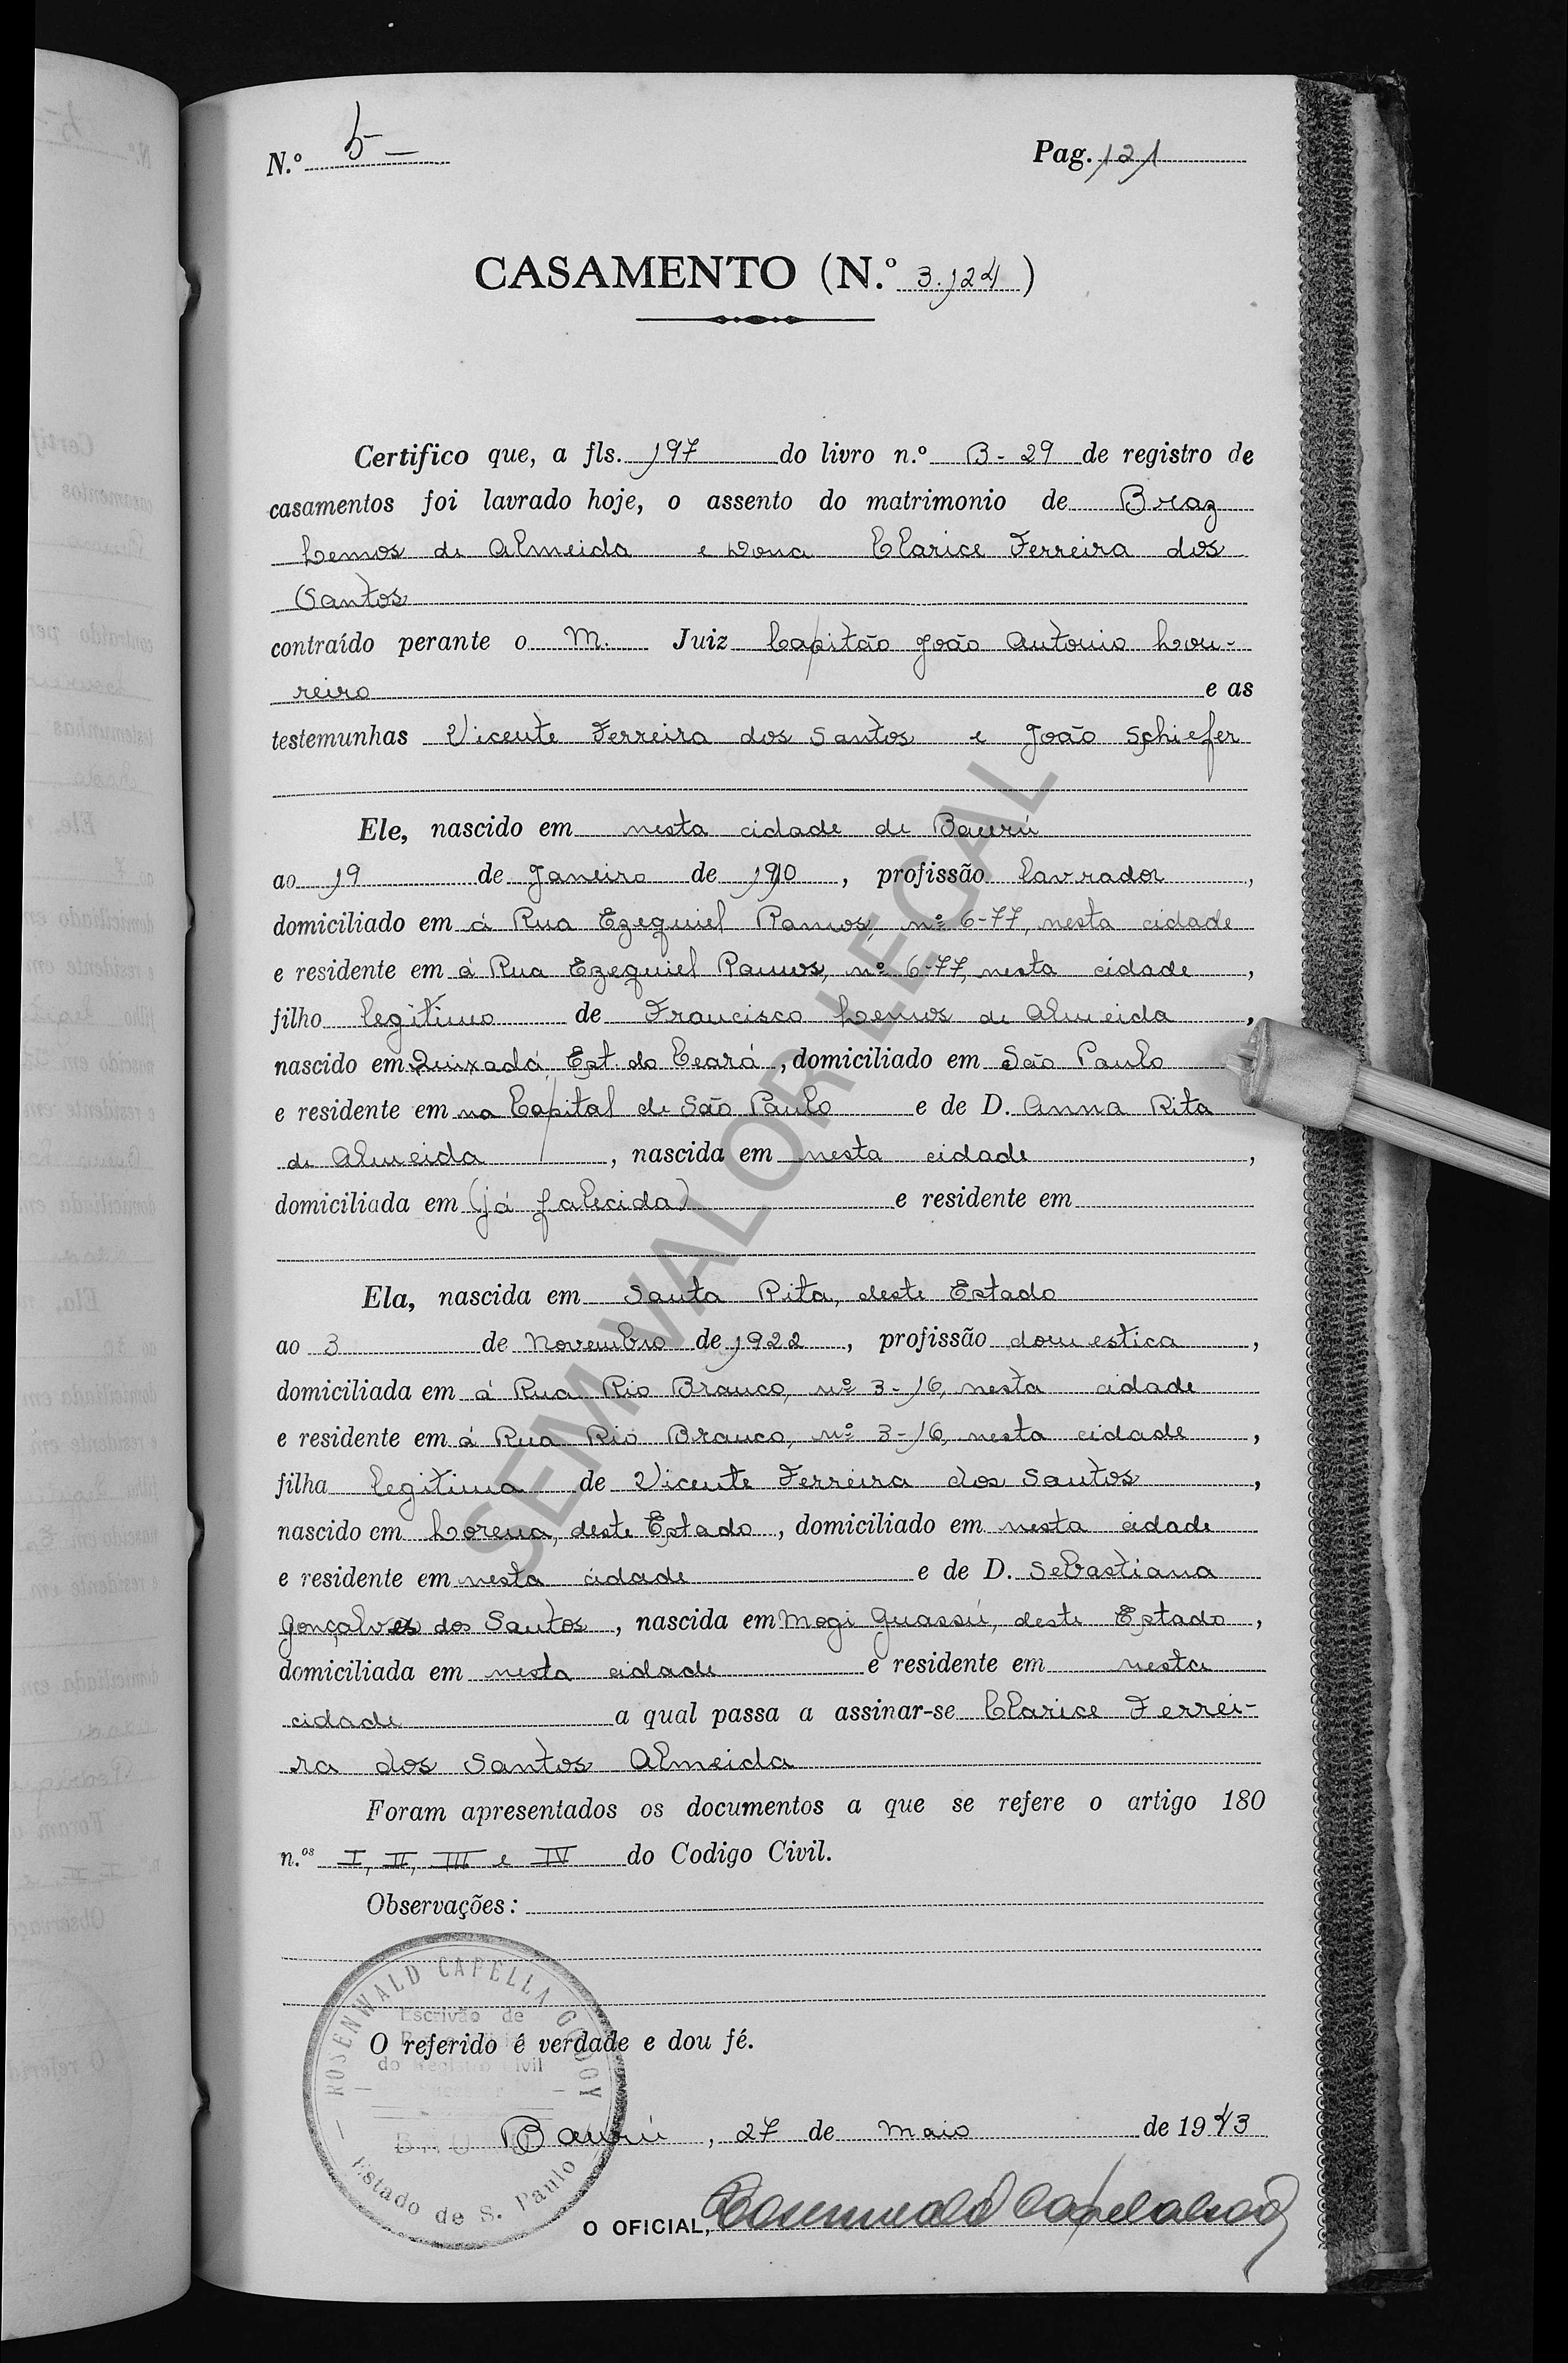 N.º 5-
Pag. 121
CASAMENTO (N.º 3.124)
Certifico que, a fls. 197 do livro n.º B-29 de registro de
casamentos foi lavrado hoje, o assento do matrimonio de Braz
Lemos de Almeida e Dona Clarice Ferreira dos
Santos
contraído perante o M. Juiz Capitão João Antonio Lou-
reiro e as
testemunhas Vicente Ferreira dos Santos e João Schiefer
Ele, nascido em nesta cidade de Baurú
ao 19 de Janeiro de 1910, profissão lavrador,
domiciliado em á Rua Ezequiel Ramos, nº 6-77, nesta cidade
e residente em á Rua Ezequiel Ramos, nº 6-77, nesta cidade,
filho legitimo de Francisco Lemos de Almeida,
nascido em Quixadá, Est. do Ceará, domiciliado em São Paulo
e residente em na Capital de São Paulo e de D. Anna Rita
de Almeida, nascida em nesta cidade,
domiciliada em (já falecida) e residente em
Ela, nascida em Santa Rita, deste Estado
ao 3 de Novembro de 1922, profissão domestica,
domiciliada em á Rua Rio Branco, nº 3-16, nesta cidade
e residente em á Rua Rio Branco, nº 3-16, nesta cidade,
filha legitima de Vicente Ferreira dos Santos,
nascido em Lorena, deste Estado, domiciliado em nesta cidade
e residente em nesta cidade e de D. Sebastiana
Gonçalves dos Santos, nascida em Mogi Guassú, deste Estado,
domiciliada em nesta cidade e residente em nesta
cidade a qual passa a assinar-se Clarice Ferrei-
ra dos Santos Almeida
Foram apresentados os documentos a que se refere o artigo 180
n.os I, II, III e IV do Codigo Civil.
Observações:
O referido é verdade e dou fé.
Baurú, 27 de Maio de 1943
O OFICIAL,
ROSENWALD CAPELLA GODOY
Escrivão de
do Registro Civil
Estado de S. Paulo
SEM VALOR LEGAL